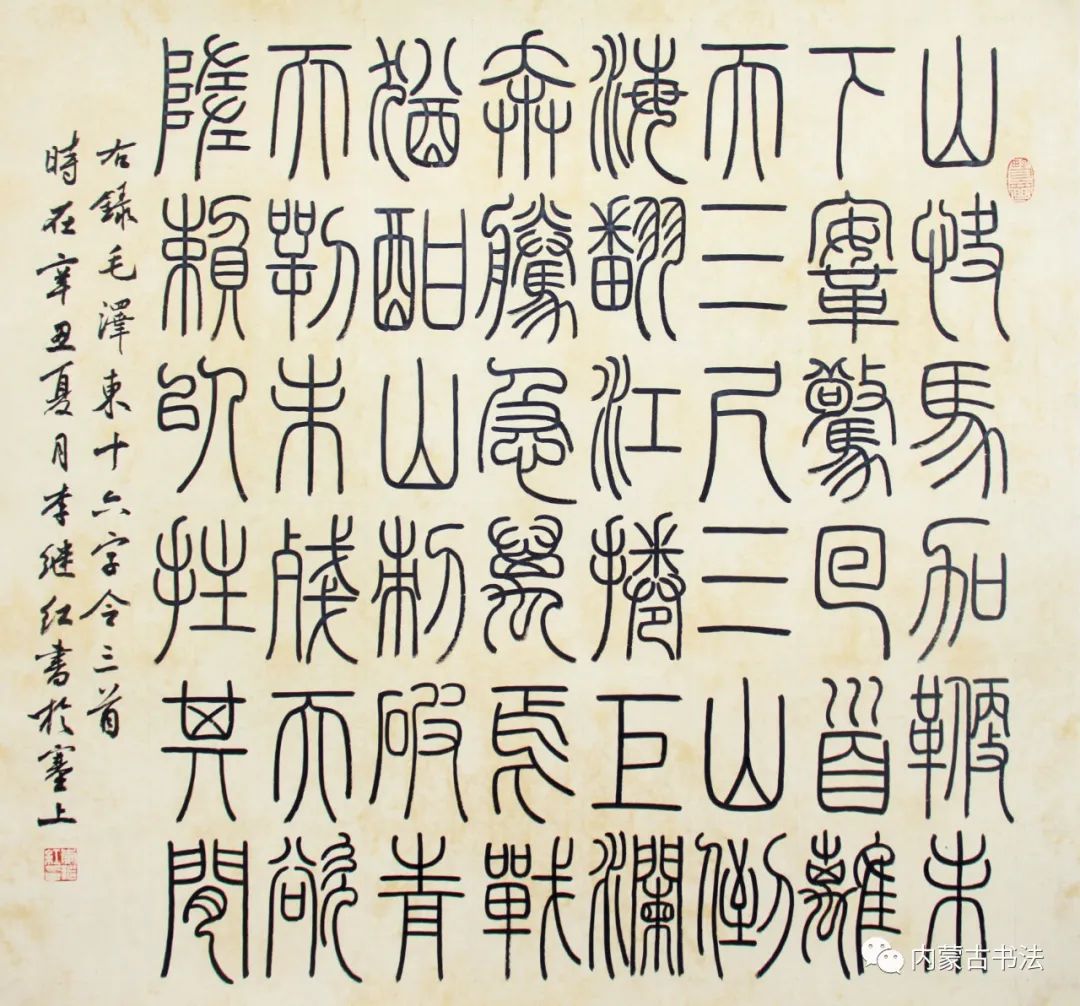 山快馬加鞭未
下鞌驚回首離
天三尺三山倒
海翻江捲巨瀾
奔騰急萬馬戰
猶酣山刺破青
天鍔未殘天欲
墮賴以拄其間
右錄毛澤東十六字令三首
時在辛丑夏月李继红書於塞上
内蒙古书法